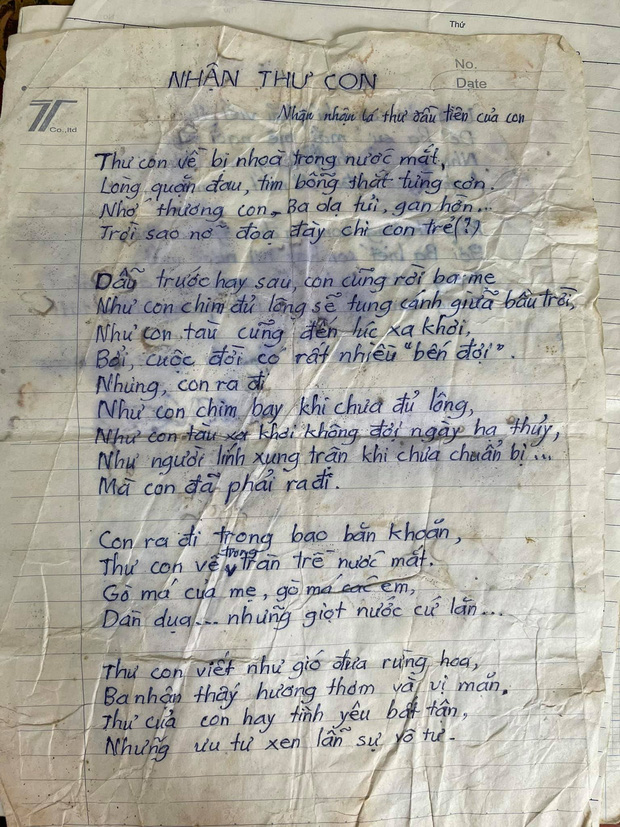 Thứ
No.
Date
T
Co.,ltd
NHẬN THƯ CON
Nhận nhận lá thư đầu tiên của con
Thư con về bị nhoà trong nước mắt,
Lòng quặn đau, tim bỗng thắt từng cơn.
Nhớ thương con. Ba da tủi, gan hờn...
Trời sao nỡ đoạ đày chi con trẻ(?)
Dẫu trước hay sau, con cũng rời ba mẹ
Như con chim đủ lông sẽ tung cánh giữa bầu trời,
Như con tàu cũng đến lúc xa khơi,
Bởi, cuộc đời có rất nhiều "bến đợi".
Nhưng, con ra đi
Như con chim bay khi chưa đủ lông,
Như con tàu xa khơi không đợi ngày hạ thủy,
Như người lính xung trận khi chưa chuẩn bị...
Mà con đã phải ra đi.
Con ra đi trong bao băn khoăn,
Thư con về trong tràn trề nước mắt.
Gò má của mẹ, gò má các em,
Dàn dụa... những giọt nước cứ lăn...
Thư con viết như gió đưa rừng hoa,
Ba nhận thấy hương thơm và vị mặn.
Thư của con hay tình yêu bất tận,
Những ưu tư xen lẫn sự vô tư.